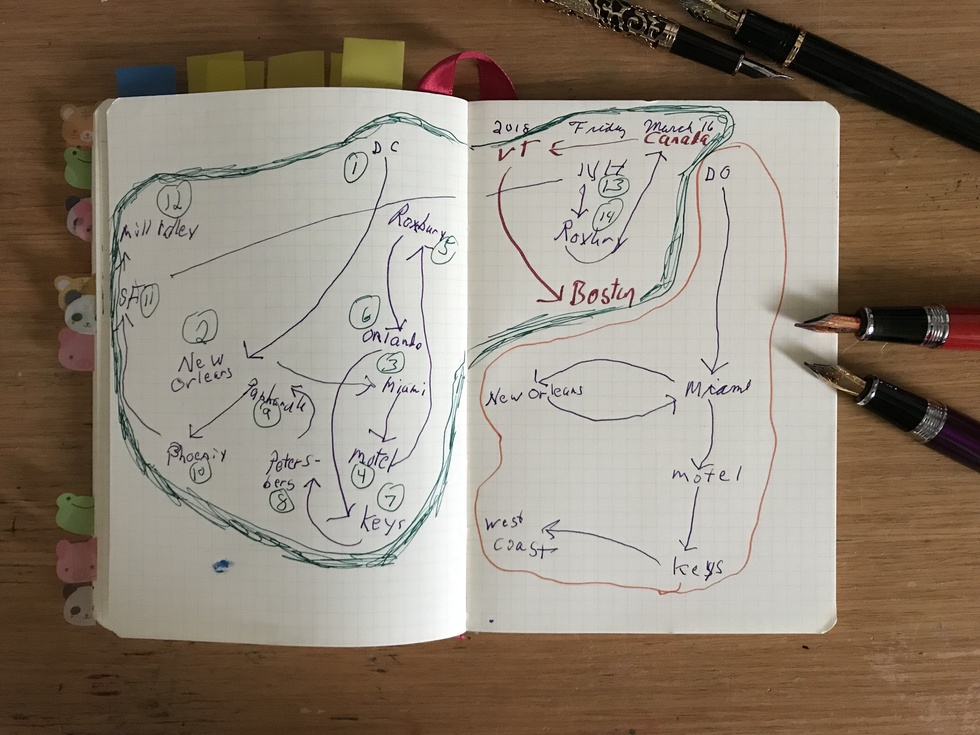 DC
1
12
Mill Valley
Roxbury
5
SF
11
2
New
Orleans
6
Orlando
3
Miami
9
Phoenix
10
Peters-
berg
8
Motel
4
7
Keys
2018 Friday March 16
VT
Canada
NH
13
14
Roxbury
Boston
DC
New Orleans
Miami
motel
West
Coast
keys